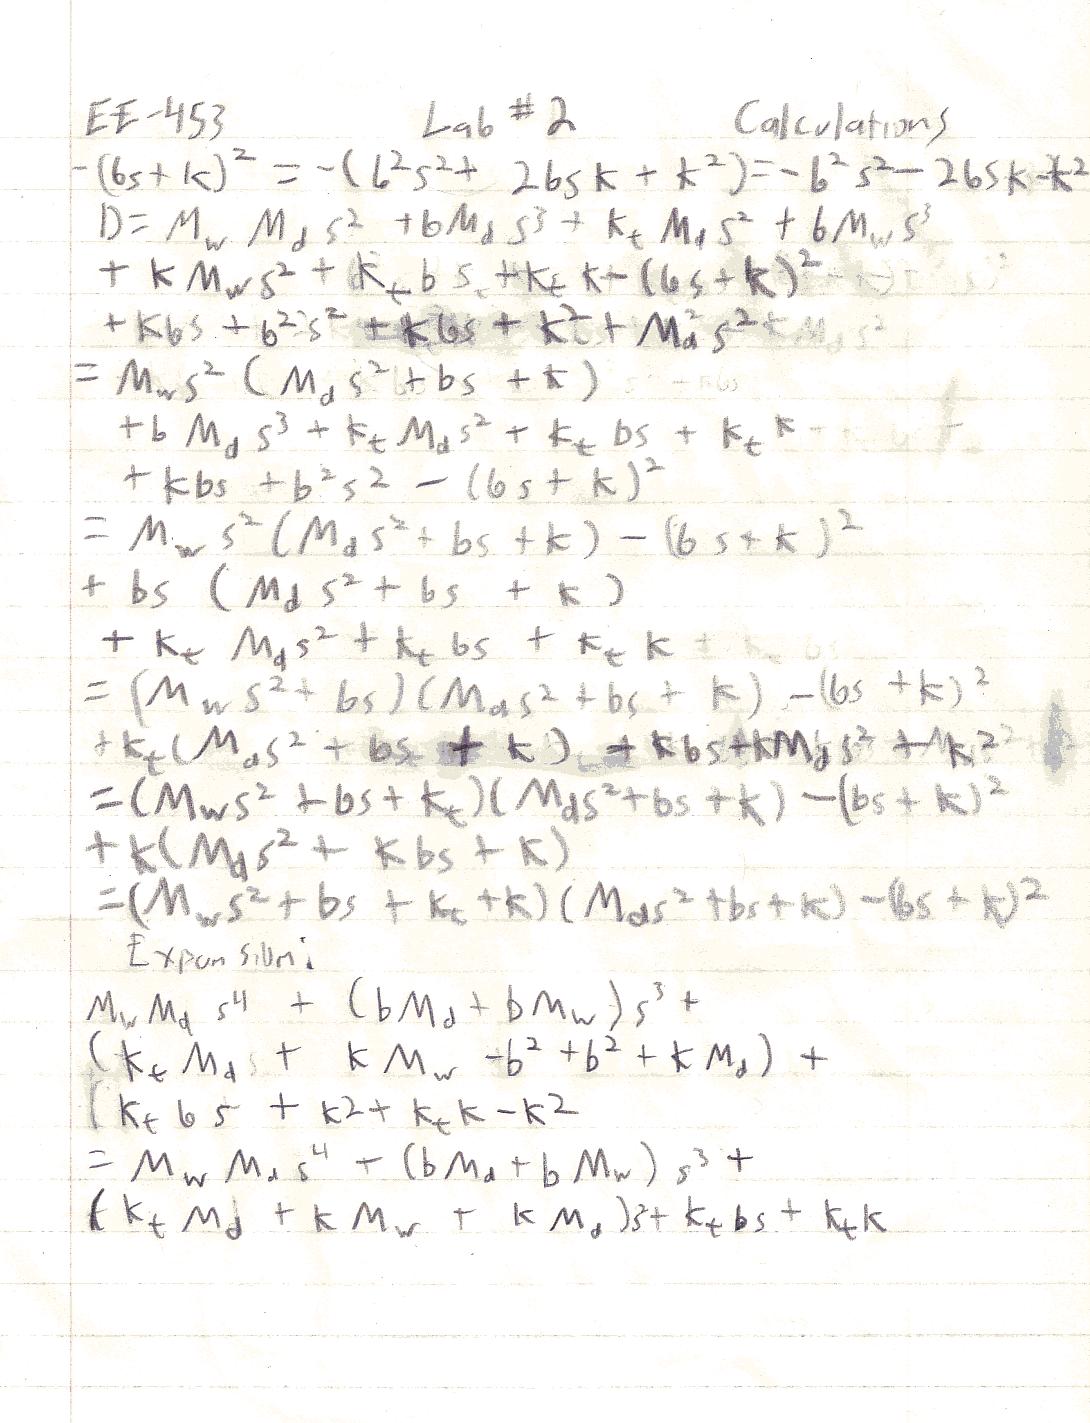 EE-453 Lab #2 Calculations
-(bs+k)² = -(b²s² + 2bsk + k²) = -b²s² - 2bsk - k²
D = M_w M_d s² + bM_d s³ + k_t M_d s² + bM_w s³
+ k M_w s² + k_t b s + k_t k - (bs+k)²
+ kbs + b²s² + kbs + k² + M_d s²
= M_w s² (M_d s² + bs + k)
+ b M_d s³ + k_t M_d s² + k_t bs + k_t k
+ kbs + b²s² - (bs + k)²
= M_w s² (M_d s² + bs + k) - (bs + k)²
+ bs (M_d s² + bs + k)
+ k_t M_d s² + k_t bs + k_t k
= (M_w s² + bs)(M_d s² + bs + k) - (bs + k)²
+ k_t (M_d s² + bs + k) + kbs + kM_d s² + k²
= (M_w s² + bs + k_t)(M_d s² + bs + k) - (bs + k)²
+ k(M_d s² + kbs + k)
= (M_w s² + bs + k_t + k)(M_d s² + bs + k) - (bs + k)²
Expansion:
M_w M_d s⁴ + (bM_d + bM_w)s³ +
(k_t M_d + k M_w - b² + b² + k M_d) +
(k_t b s + k2 + k_t k - k2
= M_w M_d s⁴ + (bM_d + b M_w) s³ +
(k_t M_d + k M_w + k M_d)s² + k_t bs + k_t k